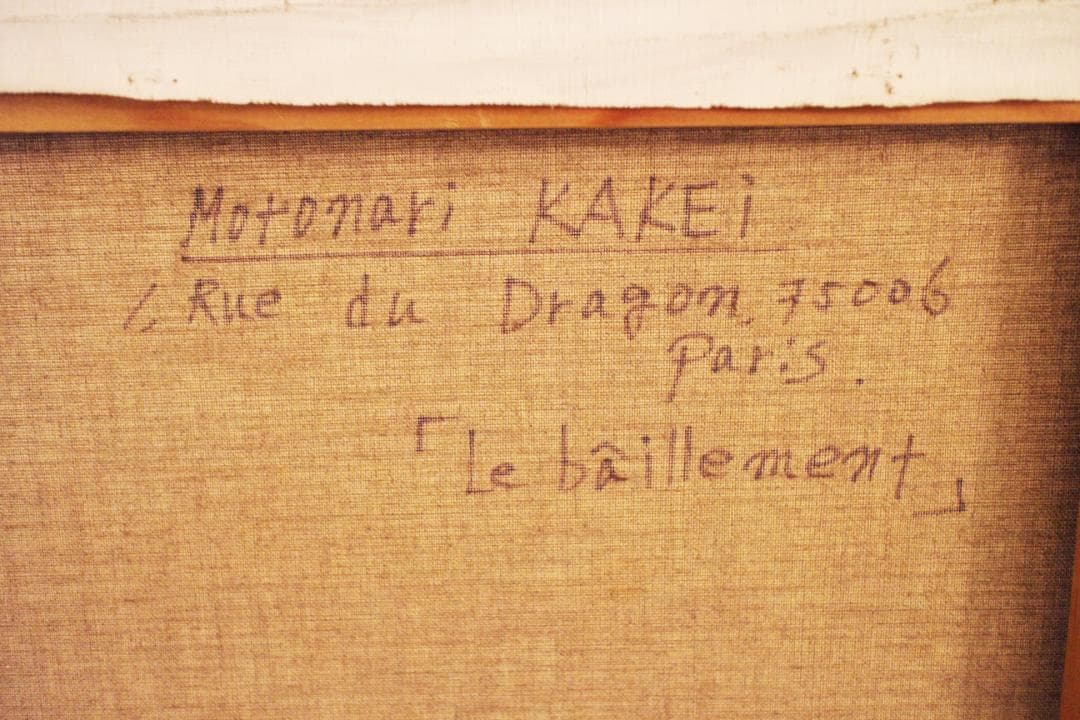 Motonari KAKEi
Rue du Dragon, 75006
Paris.
「Le bâillement」